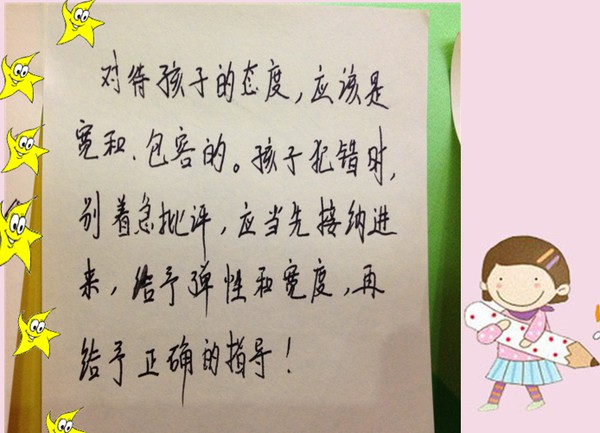 对待孩子的态度，应该是
宽和、包容的。孩子犯错时，
别着急批评，应当先接纳进
来，给予弹性和宽度，再
给予正确的指导！